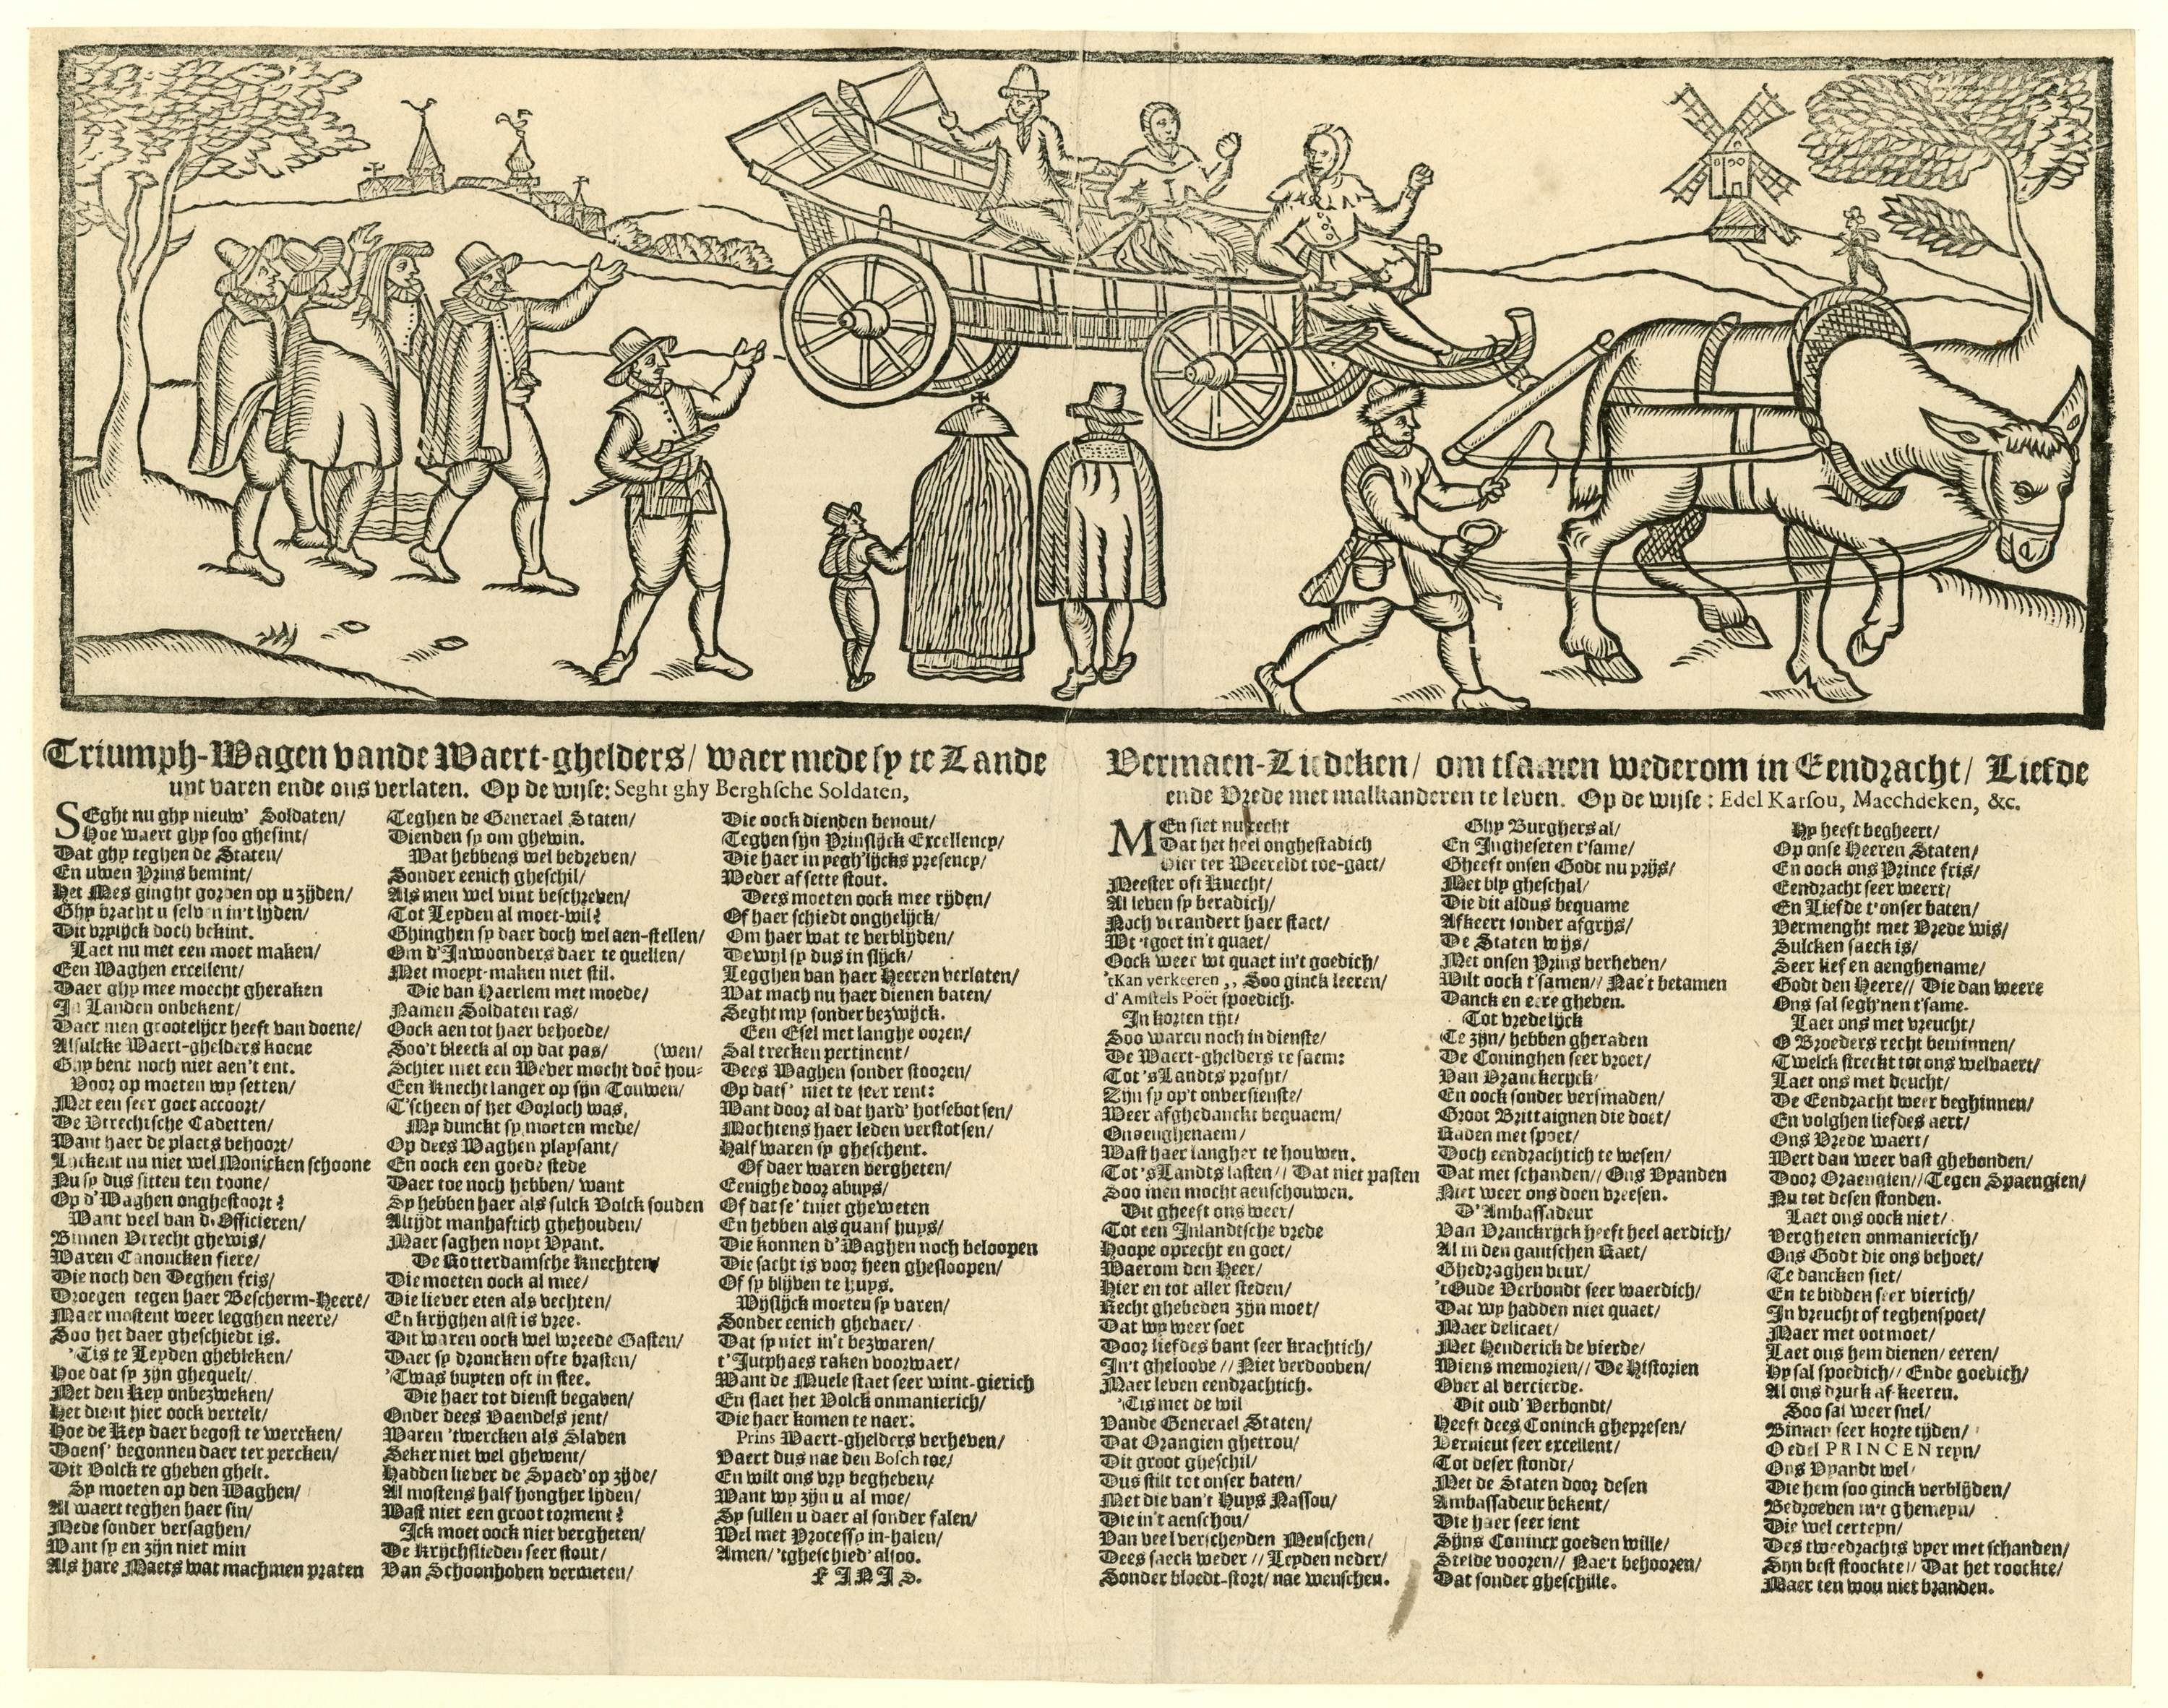 Triumph-Wagen vande Waert-ghelders/ waer mede sy te Lande
uyt varen ende ons verlaten. Op de wijse: Seght ghy Berghsche Soldaten,
SEght nu ghy nieuw' Soldaten/
Hoe waert ghy soo ghesint/
Dat ghy teghen de Staten/
En uwen Prins bemint/
Het Mes ginght gorden op u zijden/
Ghy bracht u selven in't lyden/
Dit vrylijck doch bekint.
Laet nu met een moet maken/
Een Waghen excellent/
Daer ghy mee moecht gheraken
In Landen onbekent/
Daer men grootelijcx heeft van doene/
Alsulcke Waert-ghelders koene
Ghy bent noch niet aen't ent.
Voor op moeten wy setten/
Met een seer goet accoort/
De Utrechtsche Cadetten/
Want haer de plaets behoort/
Lijckent nu niet wel Monicken schoone
Nu sy dus sitten ten toone/
Op d'Waghen onghestoort?
Want veel van d'Officieren/
Binnen Utrecht ghewis/
Waren Canoucken fiere/
Die noch den Deghen fris/
Droegen tegen haer Bescherm-Heere/
Maer mostent weer legghen neere/
Soo het daer gheschiedt is.
'Tis te Leyden ghebleken/
Hoe dat sy zijn ghequelt/
Met den Key onbezweken/
Het dient hier oock vertelt/
Hoe de Key daer begost te wercken/
Doens' begonnen daer ter percken/
Dit Volck te gheven ghelt.
Sy moeten op den Waghen/
Al waert teghen haer sin/
Mede sonder versaghen/
Want sy en zijn niet min
Als hare Maets wat machmen praten
Teghen de Generael Staten/
Dienden sy om ghewin.
Wat hebbens wel bedreven/
Sonder eenich gheschil/
Als men wel vint beschreven/
Tot Leyden al moet-wil?
Ghinghen sy daer doch wel aen-stellen/
Om d'Inwoonders daer te quellen/
Met moeyt-maken niet stil.
Die van Haerlem met moede/
Namen Soldaten ras/
Oock aen tot haer behoede/
Soo't bleeck al op dat pas/ (wen/
Schier met een Wever mocht doē hou-
Een Knecht langer op sijn Touwen/
T'scheen of het Oorloch was,
My dunckt sy moeten mede/
Op dees Waghen playsant/
En oock een goede stede
Daer toe noch hebben/ want
Sy hebben haer als sulck Volck souden
Altijdt manhaftich ghehouden/
Maer saghen noyt Vyant.
De Rotterdamsche Knechten/
Die moeten oock al mee/
Die liever eten als vechten/
En krijghen alst is vree.
Dit waren oock wel wreede Gasten/
Daer sy droncken ofte brasten/
'Twas buyten oft in stee.
Die haer tot dienst begaven/
Onder dees Vaendels jent/
Waren 'twercken als Slaven
Seker niet wel ghewent/
Hadden liever de Spaed' op zijde/
Al mostens half hongher lijden/
Wast niet een groot torment?
Ick moet oock niet vergheten/
De Krychslieden seer stout/
Van Schoonhoven vermeten/
Die oock dienden benout/
Teghen sijn Prinslijck Excellency/
Die haer in yegh'lijcks presency/
Weder af sette stout.
Dees moeten oock mee rijden/
Of haer schiedt onghelijck/
Om haer wat te verblijden/
Dewijl sy dus in slijck/
Legghen van haer Heeren verlaten/
Wat mach nu haer dienen baten/
Seght my sonder bezwijck.
Een Esel met langhe ooren/
Sal trecken pertinent/
Dees Waghen sonder stooren/
Op dats' niet te seer rent:
Want door al dat hard' hotsebotsen/
Mochtens haer leden verstotsen/
Half waren sy gheschent.
Of daer waren vergheten/
Eenighe door abuys/
Of datse' tniet gheweten
En hebben als quans huys/
Die konnen d'Waghen noch beloopen
Die sacht is voor heen ghesloopen/
Of sy blijven te huys.
Wijslijck moeten sy varen/
Sonder eenich ghevaer/
Dat sy niet in't bezwaren/
t'Jutphaes raken voorwaer/
Want de Muele staet seer wint-gierich
En slaet het Volck onmanierich/
Die haer komen te naer.
Prins Waert-ghelders verheven/
Vaert dus nae den Bosch toe/
En wilt ons vry begheven/
Want wy zijn u al moe/
Sy sullen u daer al sonder falen/
Wel met Processy in-halen/
Amen/ 'tgheschied' alsoo.
FINIS.
Vermaen-Liedeken/ om tsamen wederom in Eendracht/ Liefde
ende Vrede met malkanderen te leven. Op de wijse: Edel Karsou, Maechdeken, &c.
MEn siet nu recht
Dat het heel onghestadich
Hier ter Weereldt toe-gaet/
Meester oft Knecht/
Al leven sy beradich/
Noch verandert haer staet/
Wt 'tgoet in't quaet/
Oock weer wt quaet in't goedich/
'tKan verkeeren,, Soo ginck leeren/
d'Amstels Poët spoedich.
In korten tijt/
Soo waren noch in dienste/
De Waert-ghelders te saem:
Tot 'sLandts profijt/
Zijn sy op't onversienste/
Weer afghedanckt bequaem/
Onaenghenaem/
Wast haer langher te houwen.
Tot 'sLandts lasten// Dat niet pasten
Soo men mocht aenschouwen.
Dit gheeft ons weer/
Tot een Inlandtsche vrede
Hoope oprecht en goet/
Waerom den Heer/
Hier en tot aller steden/
Recht ghebeden zijn moet/
Dat wy weer soet
Door liefdes bant seer krachtich/
In't gheloove// Niet verdooven/
Maer leven eendrachtich.
'Tis met de wil
Vande Generael Staten/
Dat Orangien ghetrou/
Dit groot gheschil/
Dus stilt tot onser baten/
Met die van't Huys Nassou/
Die in't aenschou/
Van veel verscheyden Menschen/
Dees saeck weder// Leyden neder/
Sonder bloedt-stort/ nae wenschen.
Ghy Burghers al/
En Ingheseten t'same/
Gheeft onsen Godt nu prijs/
Met bly gheschal/
Die dit aldus bequame
Afkeert sonder afgrijs/
De Staten wijs/
Met onsen Prins verheven/
Wilt oock t'samen// Nae't betamen
Danck en eere gheven.
Tot vredelijck
Te zijn/ hebben gheraden
De Coninghen seer vroet/
Van Vranckerijck/
En oock sonder versmaden/
Groot Brittaignen die doet/
Raden met spoet/
Doch eendrachtich te wesen/
Dat met schanden// Ons Vyanden
Niet weer ons doen vreesen.
D'Ambassadeur
Van Vranckrijck heeft heel aerdich/
Al in den gantschen Raet/
Ghedraghen veur/
'tOude Verbondt seer waerdich/
Dat wy hadden niet quaet/
Maer delicaet/
Met Henderick de vierde/
Wiens memorien// De Historien
Over al vercierde.
Dit oud' Verbondt/
Heeft dees Coninck ghepresen/
Vernieut seer excellent/
Tot deser stondt/
Met de Staten door desen
Ambassadeur bekent/
Die haer seer jent
Sijns Coninck goeden wille/
Stelde vooren// Nae't behooren/
Dat sonder gheschille.
Hy heeft begheert/
Op onse Heeren Staten/
En oock ons Prince fris/
Eendracht seer weert/
En Liefde t'onser baten/
Vermenght met Vrede wis/
Sulcken saeck is/
Seer lief en aenghename/
Godt den Heere// Die dan weere
Ons sal segh'nen t'same.
Laet ons met vreucht/
O Broeders recht beminnen/
Twelck streckt tot ons welvaert/
Laet ons met deucht/
De Eendracht weer beghinnen/
En volghen liefdes aert/
Ons Vrede waert/
Wert dan weer vast ghebonden/
Door Oraengien// Tegen Spaengien/
Nu tot desen stonden.
Laet ons oock niet/
Vergheten onmanierich/
Ons Godt die ons behoet/
Te dancken siet/
En te bidden seer vierich/
In vreucht of teghenspoet/
Maer met ootmoet/
Laet ons hem dienen/ eeren/
Hy sal spoedich// Ende goedich/
Al ons druck af-keeren.
Soo sal weer snel/
Binnen seer korte tijden/
O edel PRINCEN reyn/
Ons Vyandt wel/
Die hem soo ginck verblijden/
Bedroeven in't ghemeyn/
Die wel certeyn/
Des tweedrachts vyer met schanden/
Sijn best stoockte// Dat het roockte/
Maer ten wou niet branden.